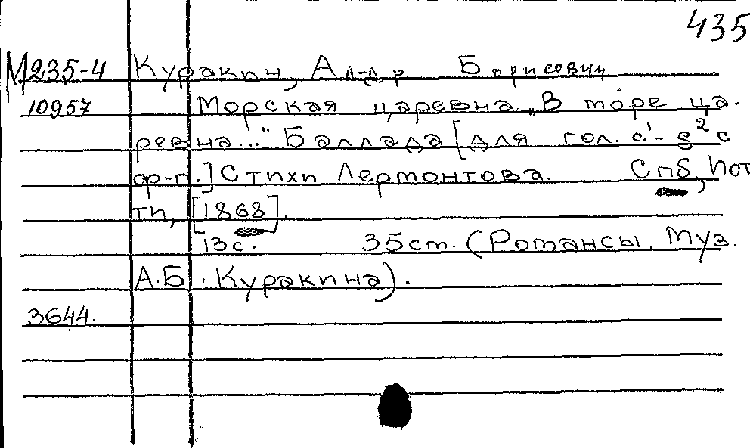 435
М235-4 Куракин, Ал-др Борисович
10957 Морская царевна. „В море ца-
ревна..." Баллада [для гол. c¹-g² с
ф-п.] Стихи Лермонтова. Спб,
ти, [1868].
13с. 35см. (Романсы. Муз.
А.Б. Куракина).
3644.